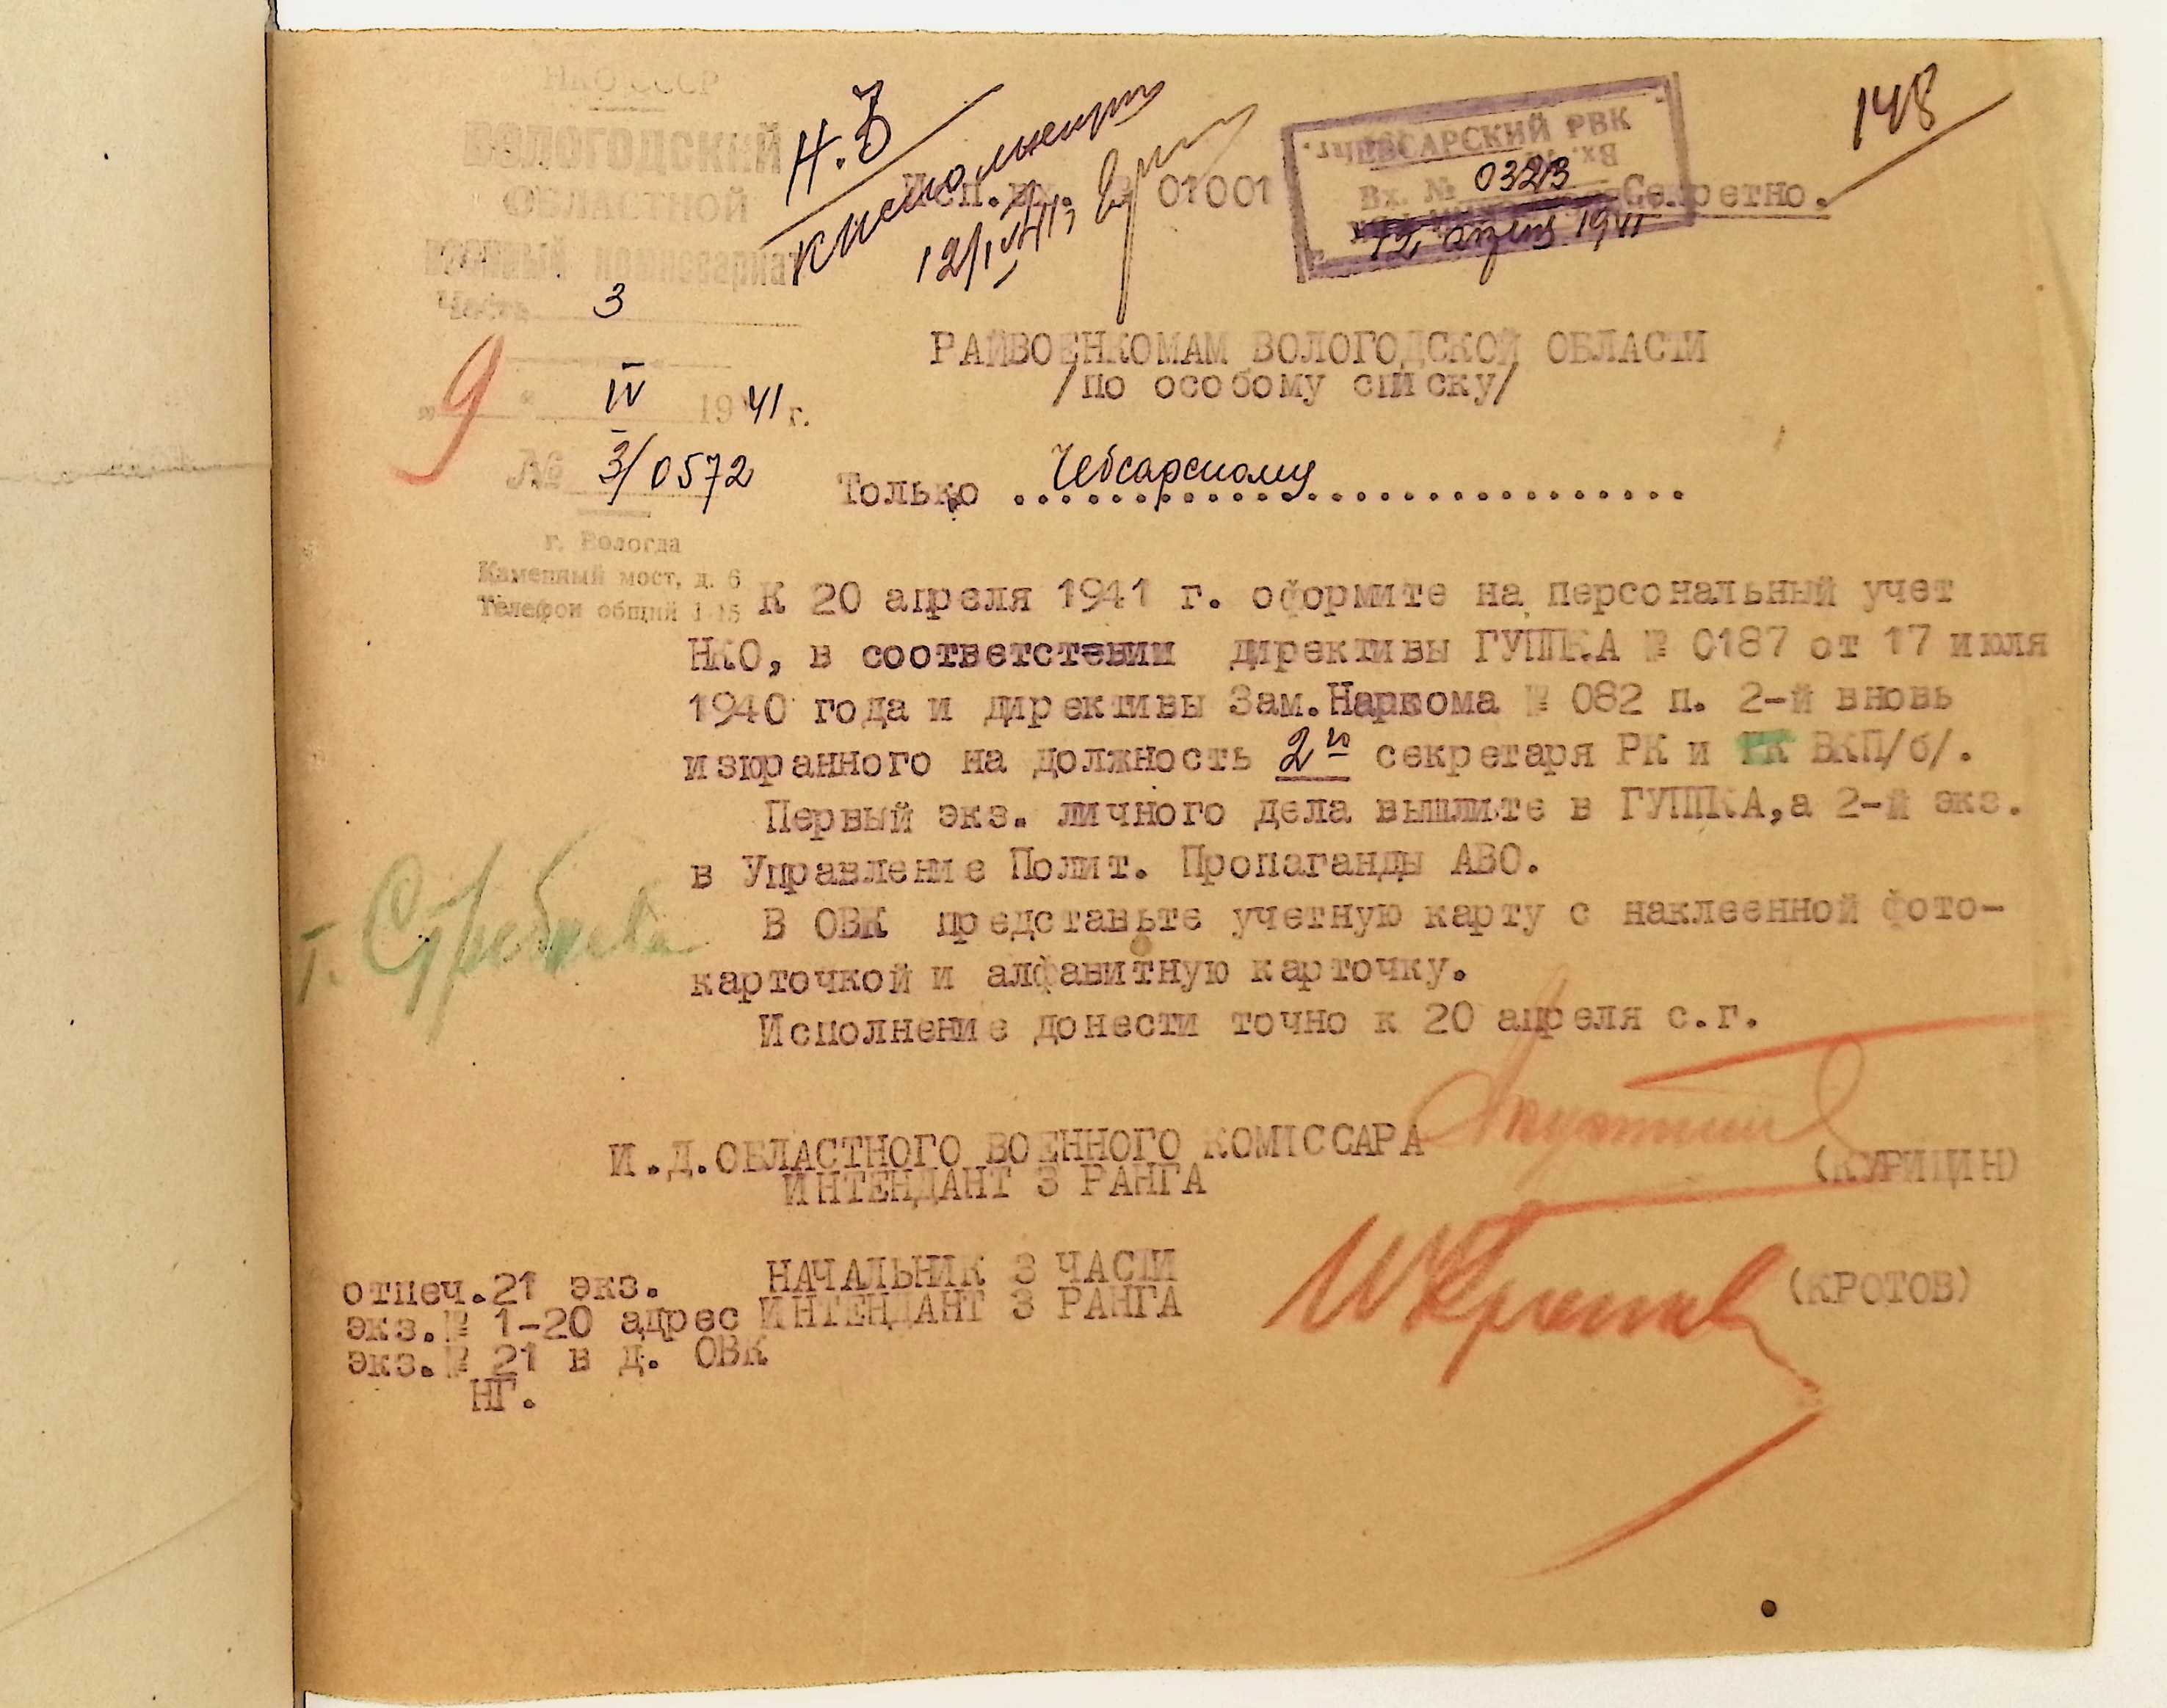 НКО СССР
ВОЛОГОДСКИЙ
ОБЛАСТНОЙ
ВОЕННЫЙ комиссариат
Часть 3
"9" IV 1941 г.
№ 3/0572
г. Вологда
Каменный мост, д. 6
Телефон общий 1-15
Н.3
К исполнению
12/IV 41г
Исп. вх. 01001
ЧЕБСАРСКИЙ РВК
Вх. № 0323
12 апреля 1941
Секретно.
148
РАЙВОЕНКОМАМ ВОЛОГОДСКОЙ ОБЛАСТИ
/по особому списку/
Только Чебсарскому
К 20 апреля 1941 г. оформите на персональный учет
НКО, в соответствии директивы ГУППКА № 0187 от 17 июля
1940 года и директивы Зам.Наркома № 082 п. 2-й вновь
избранного на должность 2го секретаря РК и ГК ВКП/б/.
Первый экз. личного дела вышлите в ГУППКА,а 2-й экз.
в Управление Полит. Пропаганды АВО.
В ОВК представьте учетную карту с наклеенной фото-
карточкой и алфавитную карточку.
Исполнение донести точно к 20 апреля с.г.
И.Д.ОБЛАСТНОГО ВОЕННОГО КОМИССАРА
ИНТЕНДАНТ 3 РАНГА
(КУРИЦИН)
НАЧАЛЬНИК 3 ЧАСТИ
ИНТЕНДАНТ 3 РАНГА
(КРОТОВ)
отпеч.21 экз.
экз.№ 1-20 адрес
экз.№ 21 в д. ОВК
НГ.